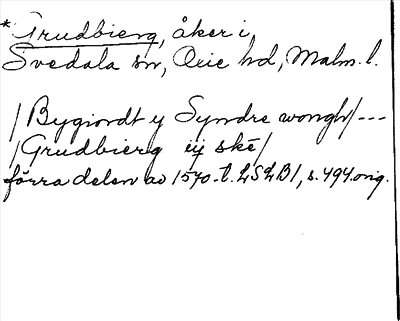 *Grudbierg, åker i
Svedala sn, Oxie hd, Malm. l.
/Bygiordt y Syndre wongh/---
/Grudbierg iij skē/
förra delen av 1570-t. LSLB1, s. 494 orig.